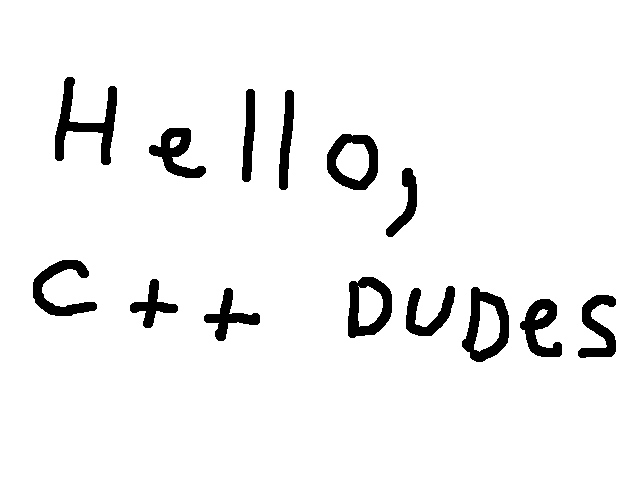 Hello,
C++ DUDes